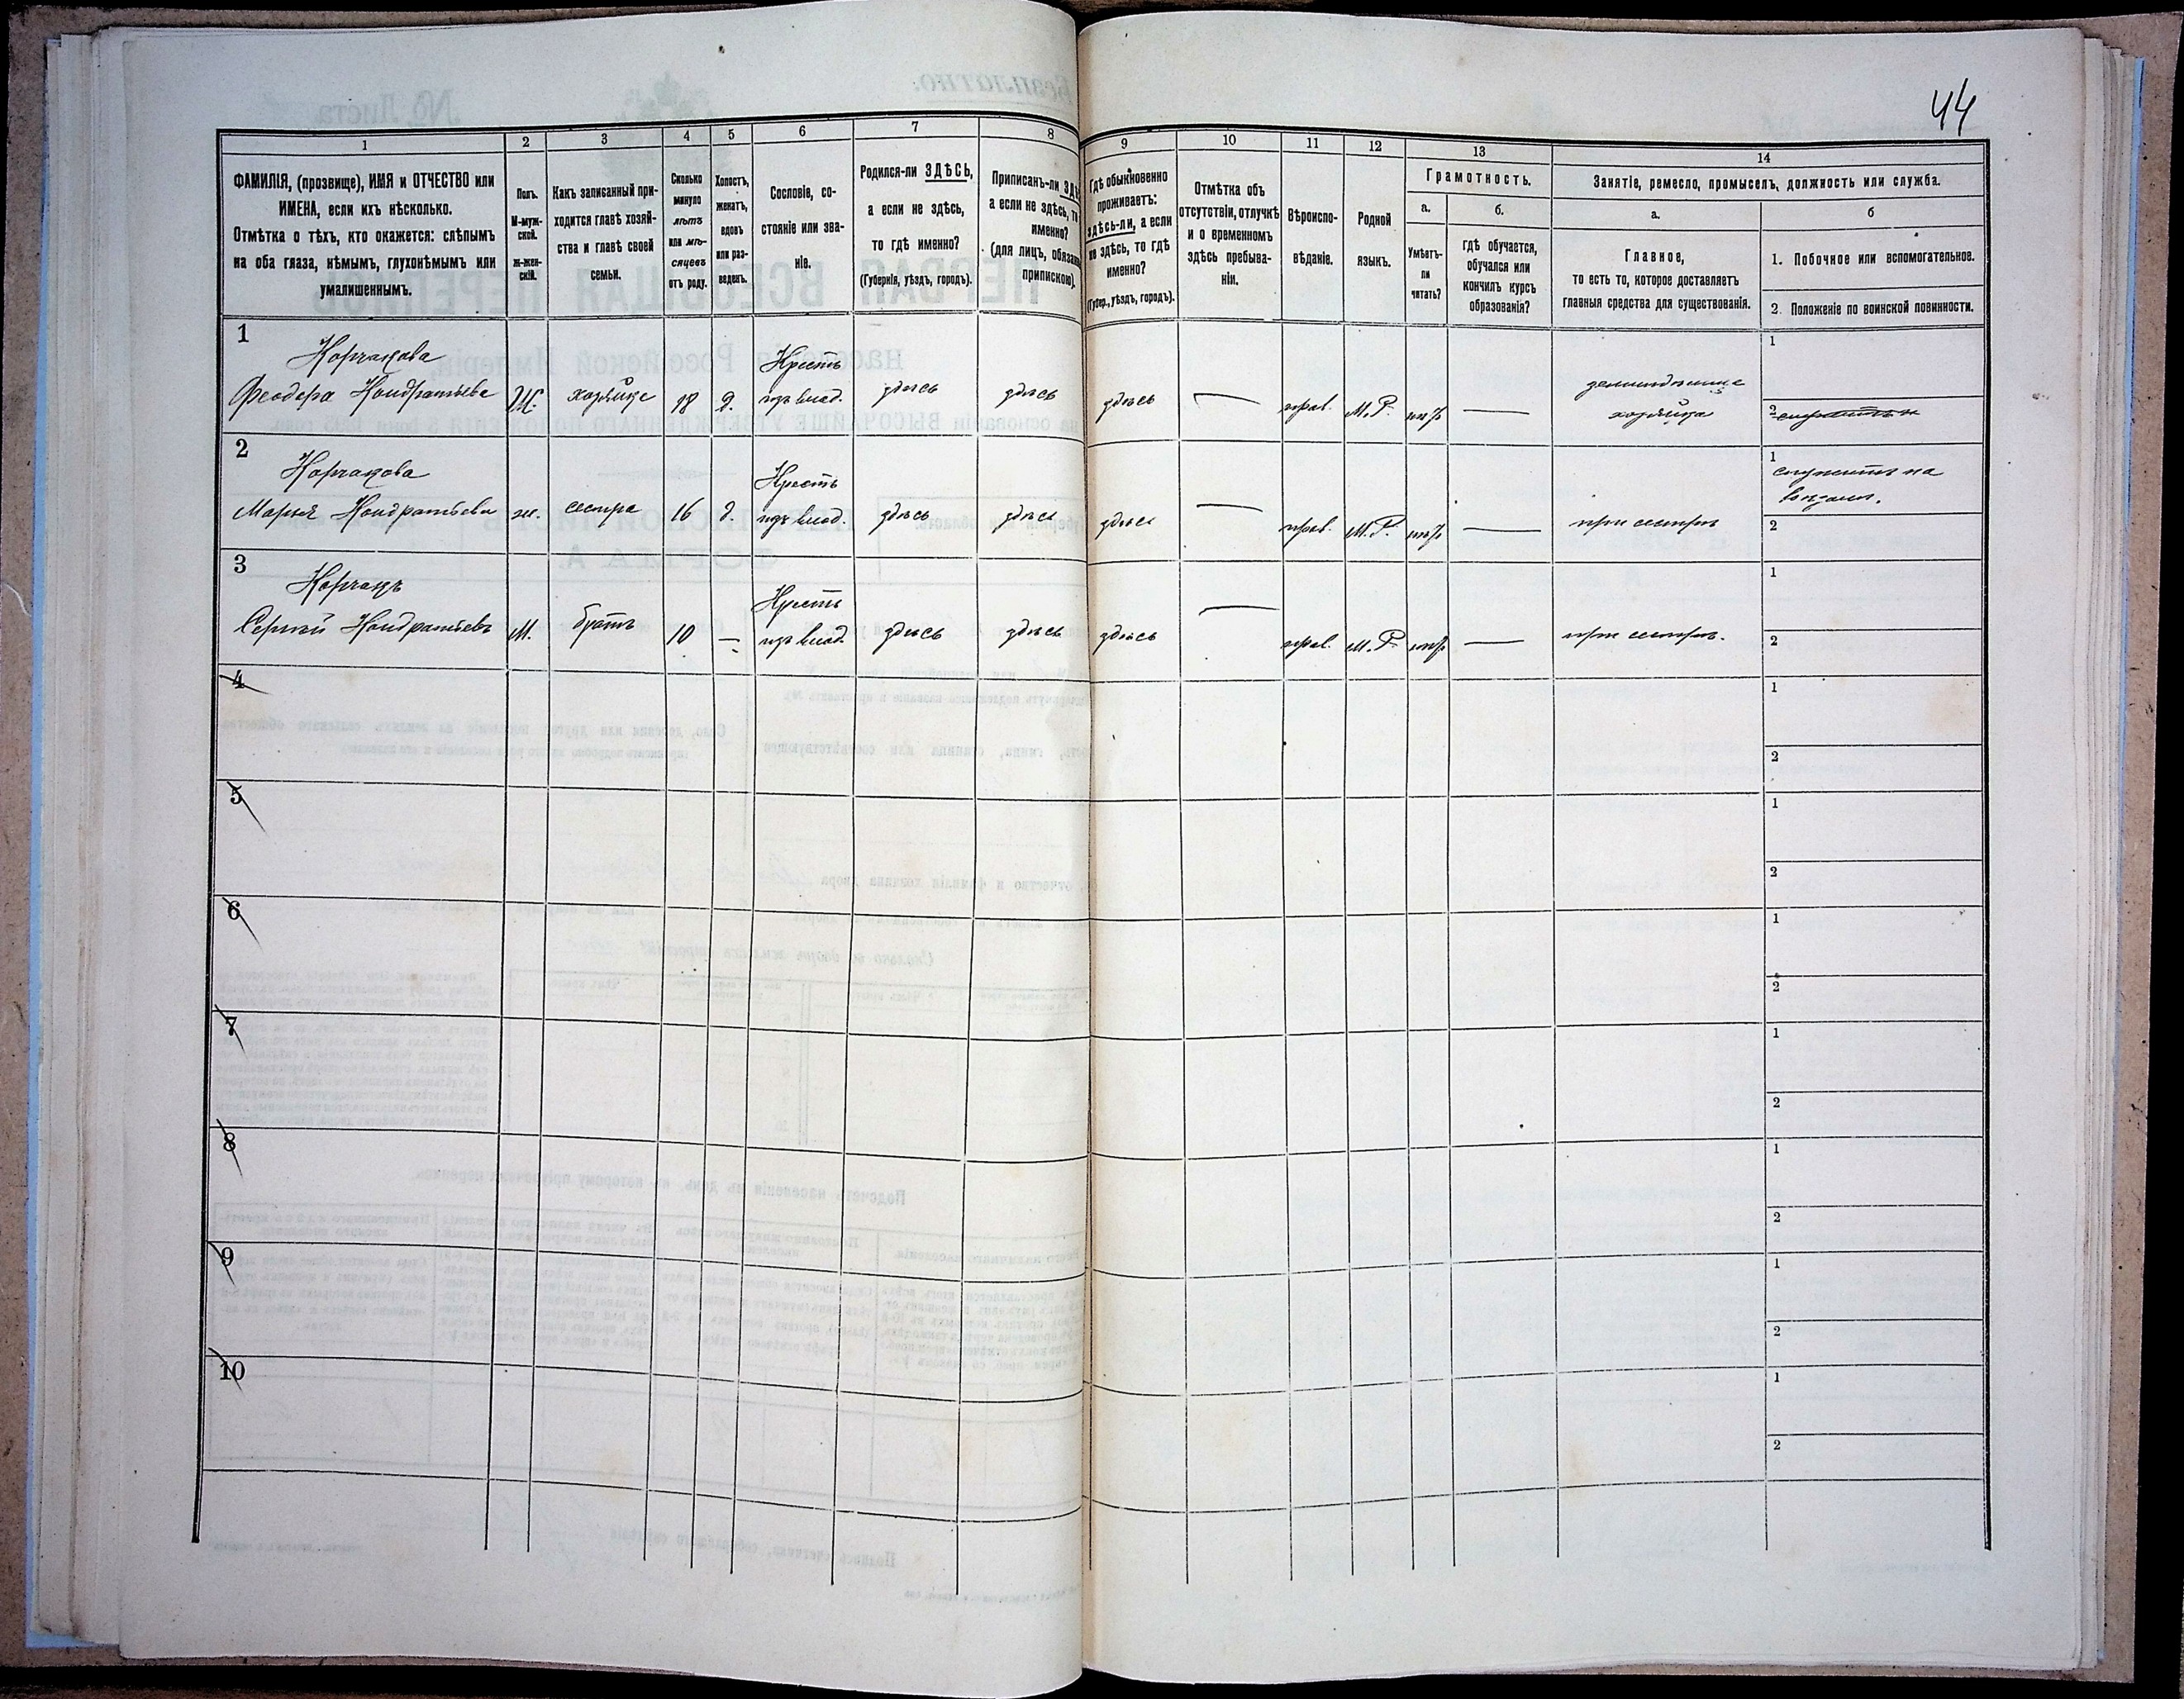 44
1
2
3
4
5
6
7
8
9
10
11
12
13
14
ФАМИЛІЯ, (прозвище), ИМЯ и ОТЧЕСТВО или
ИМЕНА, если ихъ нѣсколько.
Отмѣтка о тѣхъ, кто окажется: слѣпымъ
на оба глаза, нѣмымъ, глухонѣмымъ или
умалишеннымъ.
Полъ.
М-муж-
ской.
Ж-жен-
скій.
Какъ записанный при-
ходится главѣ хозяй-
ства и главѣ своей
семьи.
Сколько
минуло
лѣтъ
или мѣ-
сяцевъ
отъ роду.
Холостъ,
женатъ,
вдовъ
или раз-
веденъ.
Сословіе, со-
стояніе или зва-
ніе.
Родился-ли ЗДѢСЬ,
а если не здѣсь,
то гдѣ именно?
(Губернія, уѣздъ, городъ).
Приписанъ-ли
а если не здѣсь, то
именно?
(для лицъ,
припискою).
Гдѣ обыкновенно
проживаетъ:
здѣсь-ли, а если
не здѣсь, то гдѣ
именно?
(Губер., уѣздъ, городъ).
Отмѣтка объ
отсутствіи, отлучкѣ
и о временномъ
здѣсь пребыва-
ніи.
Вѣроиспо-
вѣданіе.
Родной
языкъ.
Грамотность.
а.
б.
Умѣетъ-
ли
читать?
гдѣ обучается,
обучался или
кончилъ курсъ
образованія?
Занятіе, ремесло, промыселъ, должность или служба.
а.
б
Главное,
то есть то, которое доставляетъ
главныя средства для существованія.
1. Побочное или вспомогательное.
2. Положеніе по воинской повинности.
1
Корчакова
Феодора Кондратьева
Ж.
хозяйка
18
д.
Крестъ
изъ влад.
здѣсь
здѣсь
здѣсь
—
прав.
М.Р.
нѣтъ
—
хозяйка
1
2
2
Корчакова
Марья Кондратьева
ж.
сестра
16
д.
Крестъ
изъ влад.
здѣсь
здѣсь
здѣсь
—
прав.
М.Р.
нѣтъ
—
при сестрѣ
1
служитъ на
2
3
Корчакъ
Сергѣй Кондратьевъ
М.
братъ
10
—
Крестъ
изъ влад.
здѣсь
здѣсь
здѣсь
—
прав.
М.Р.
нѣтъ
—
при сестрѣ.
1
2
4
1
2
5
1
2
6
1
2
7
1
2
8
1
2
9
1
2
10
1
2